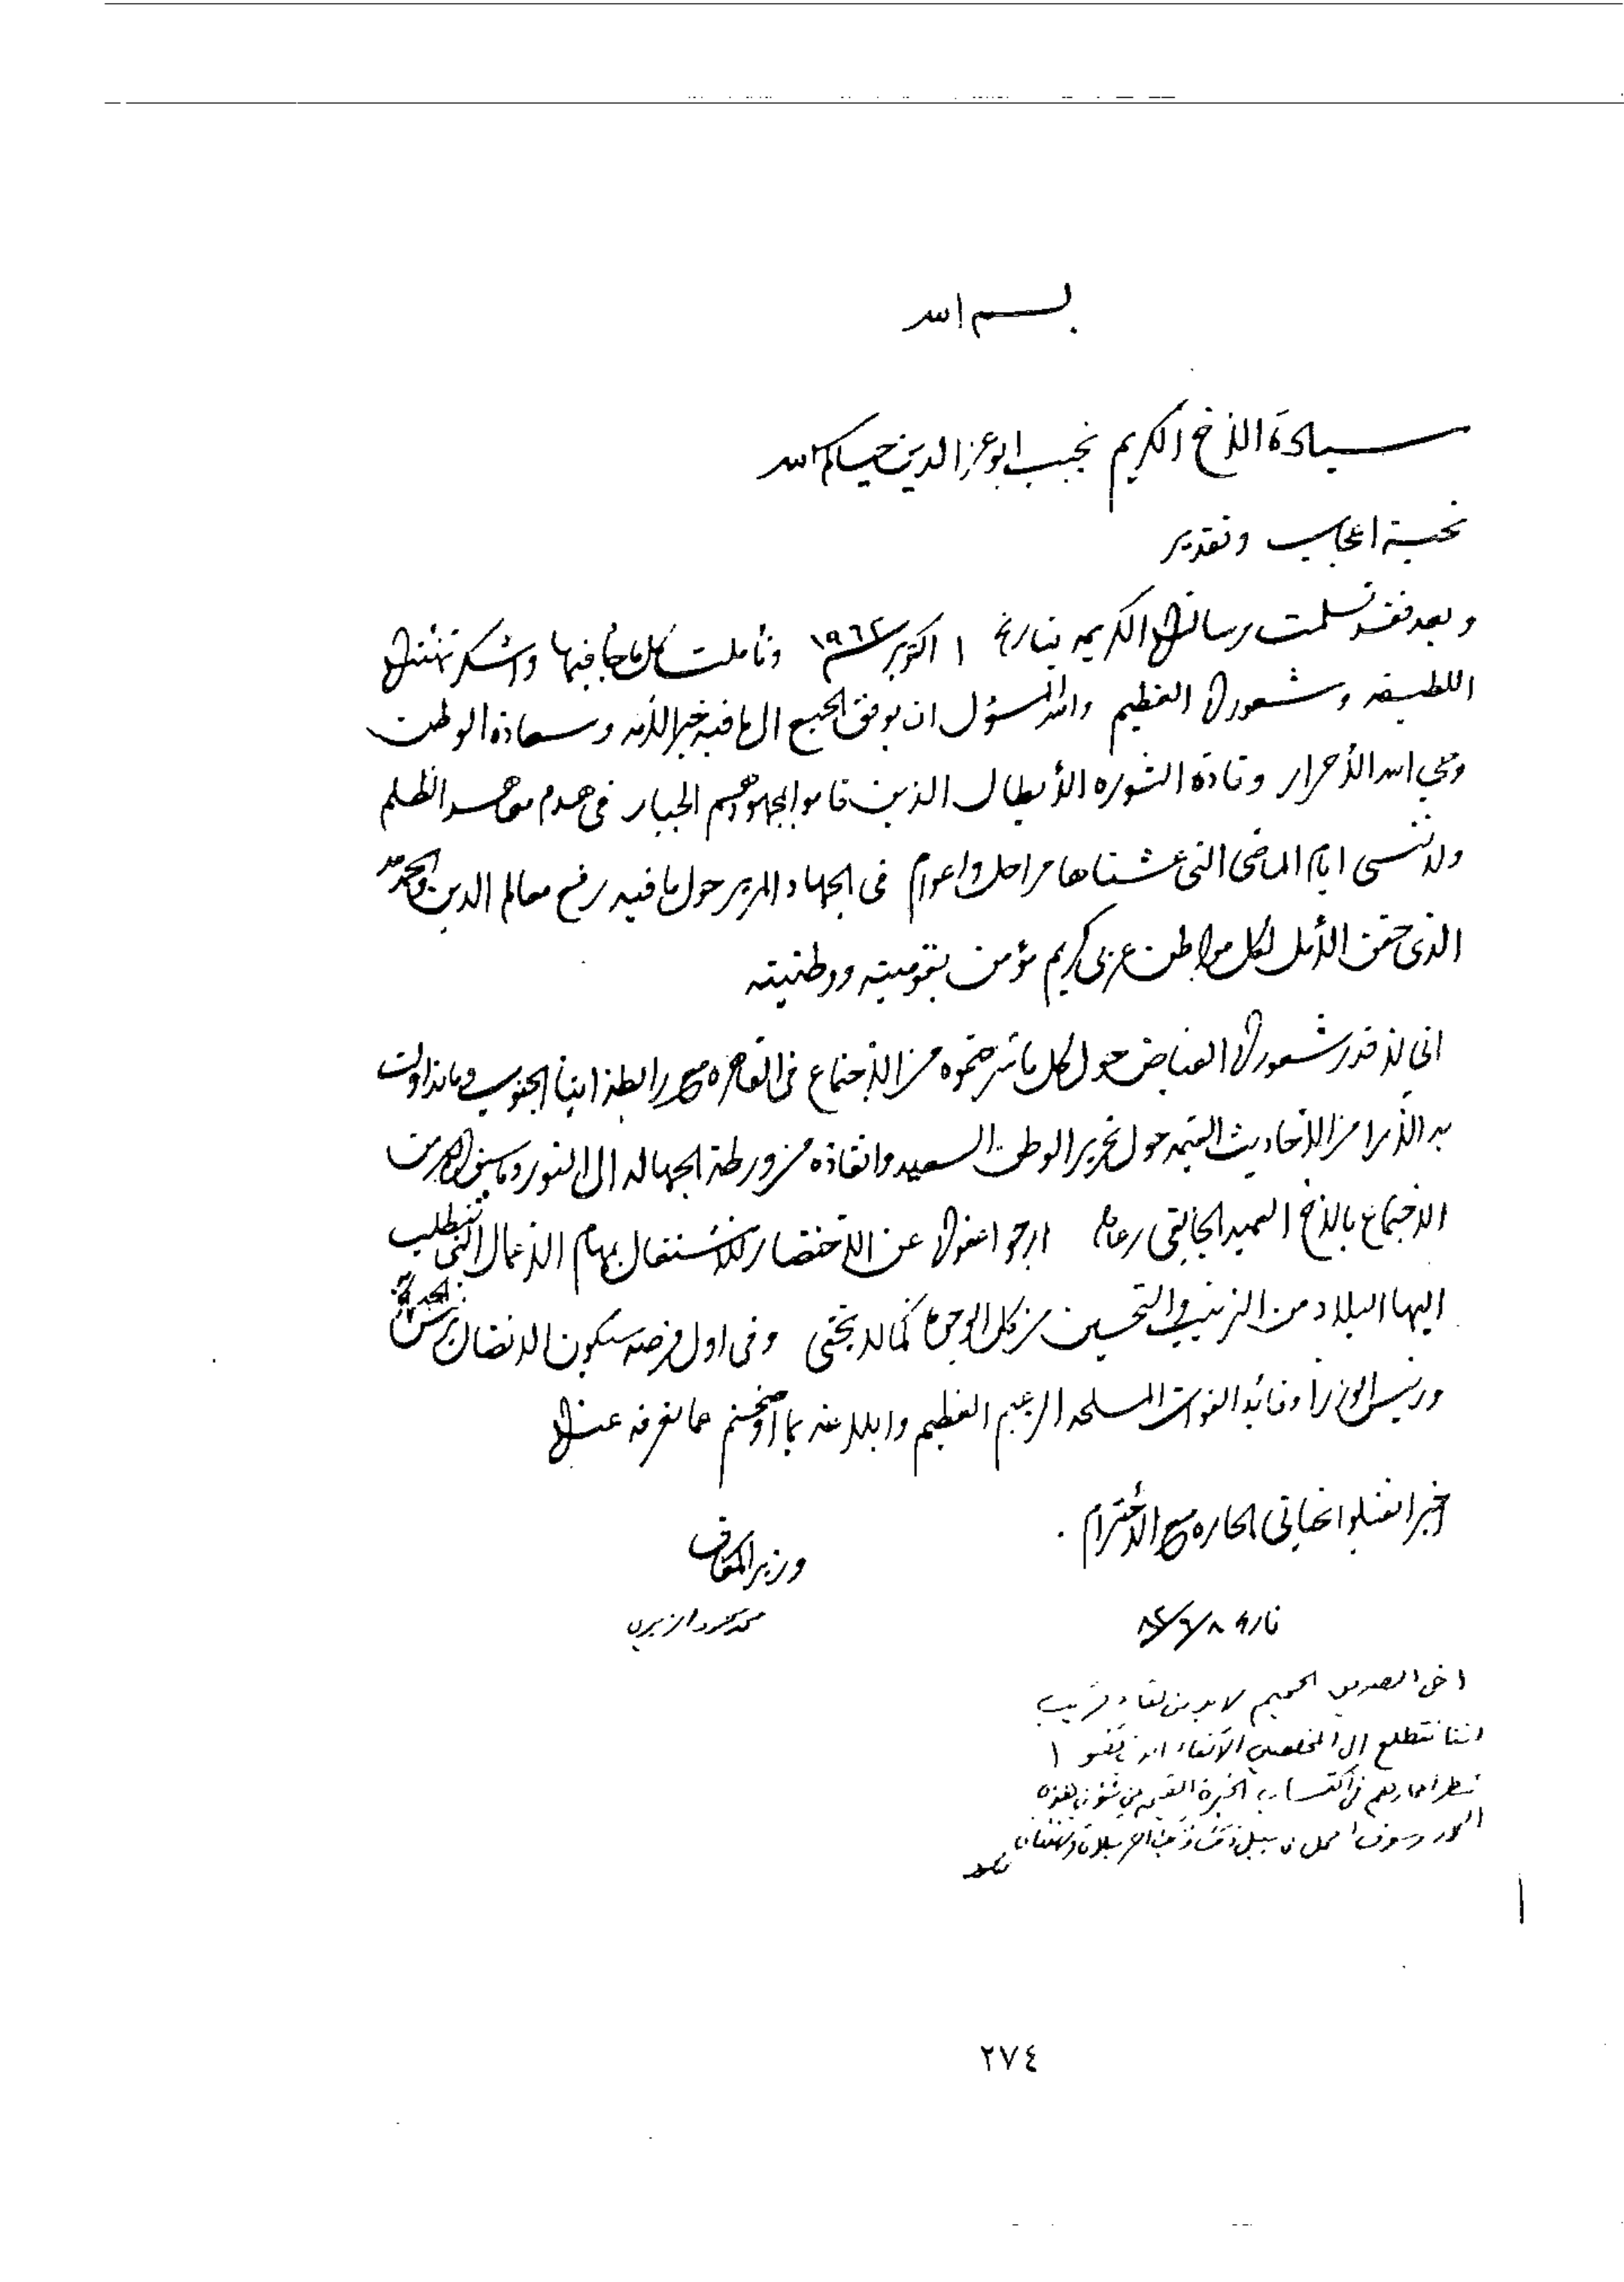 بسم الله
سيادة الأخ الكريم نجيب ابو عز الدين حياكم الله
تحية اعجاب وتقدير
وبعد فقد تسلمت رسالتك الكريمه بتاريخ ١ اكتوبر سنة ١٩٦٢ وتأملت كل ما جأ فيها واشكر تهنئتك
اللطيفه وشعورك العظيم والله المسؤل ان يوفق الجميع الى ما فيه خير الأمه وسعادة الوطن
وحي الله الأحرار وقادة الثوره الأبطال الذين قاموا بجهودهم الجبار في هدم معاهد الظلم
ولا ننسى ايام الماضي التي عشناها مراحل واعوام في الجهاد المرير حول ما فيه رفع معالم الدين والحمد لله
الذي حقق الأمل لكل مواطن عربي كريم مؤمن بقوميته ووطنيته
اني لأقدر شعورك الفياض حول كل ما شرحتموه من الأجتماع في القاهره مع رابطة ابنا الجنوب وما تداولت
به الأرا من الأحاديث القيمه حول تحرير الوطن السعيد وانقاذه من ورطة الجهاله الى النور وما سبق لك من
الاجتماع بالأخ العميد الجائفي رعاه ارجو اعفوك عن الأختصار للأشتغال بمهام الأعمال التي تتطلب
اليها البلاد من الترتيب والتحسين من كل الوجوه كما لا يخفى وفي اول فرصه سيكون الاتصال برئيس الجمهورية
ورئيس الوزرأ وقائد القوات المسلحه الزعيم العظيم وابلاغه بما أوضحتم عما نعرفه عنك
خيرا تقبلوا تحياتي الحاره مع الأحترام .
وزير المعارف
تاريخ ٨/٦/٨٢
محمد محمود الزبيري
اخي الصديق الحميم لا بد من لقاء قريب
اننا نتطلع الى المخلصين الأنقاء الذين
في اكتساب الخبرة
وسوف في سبيل
٢٧٤